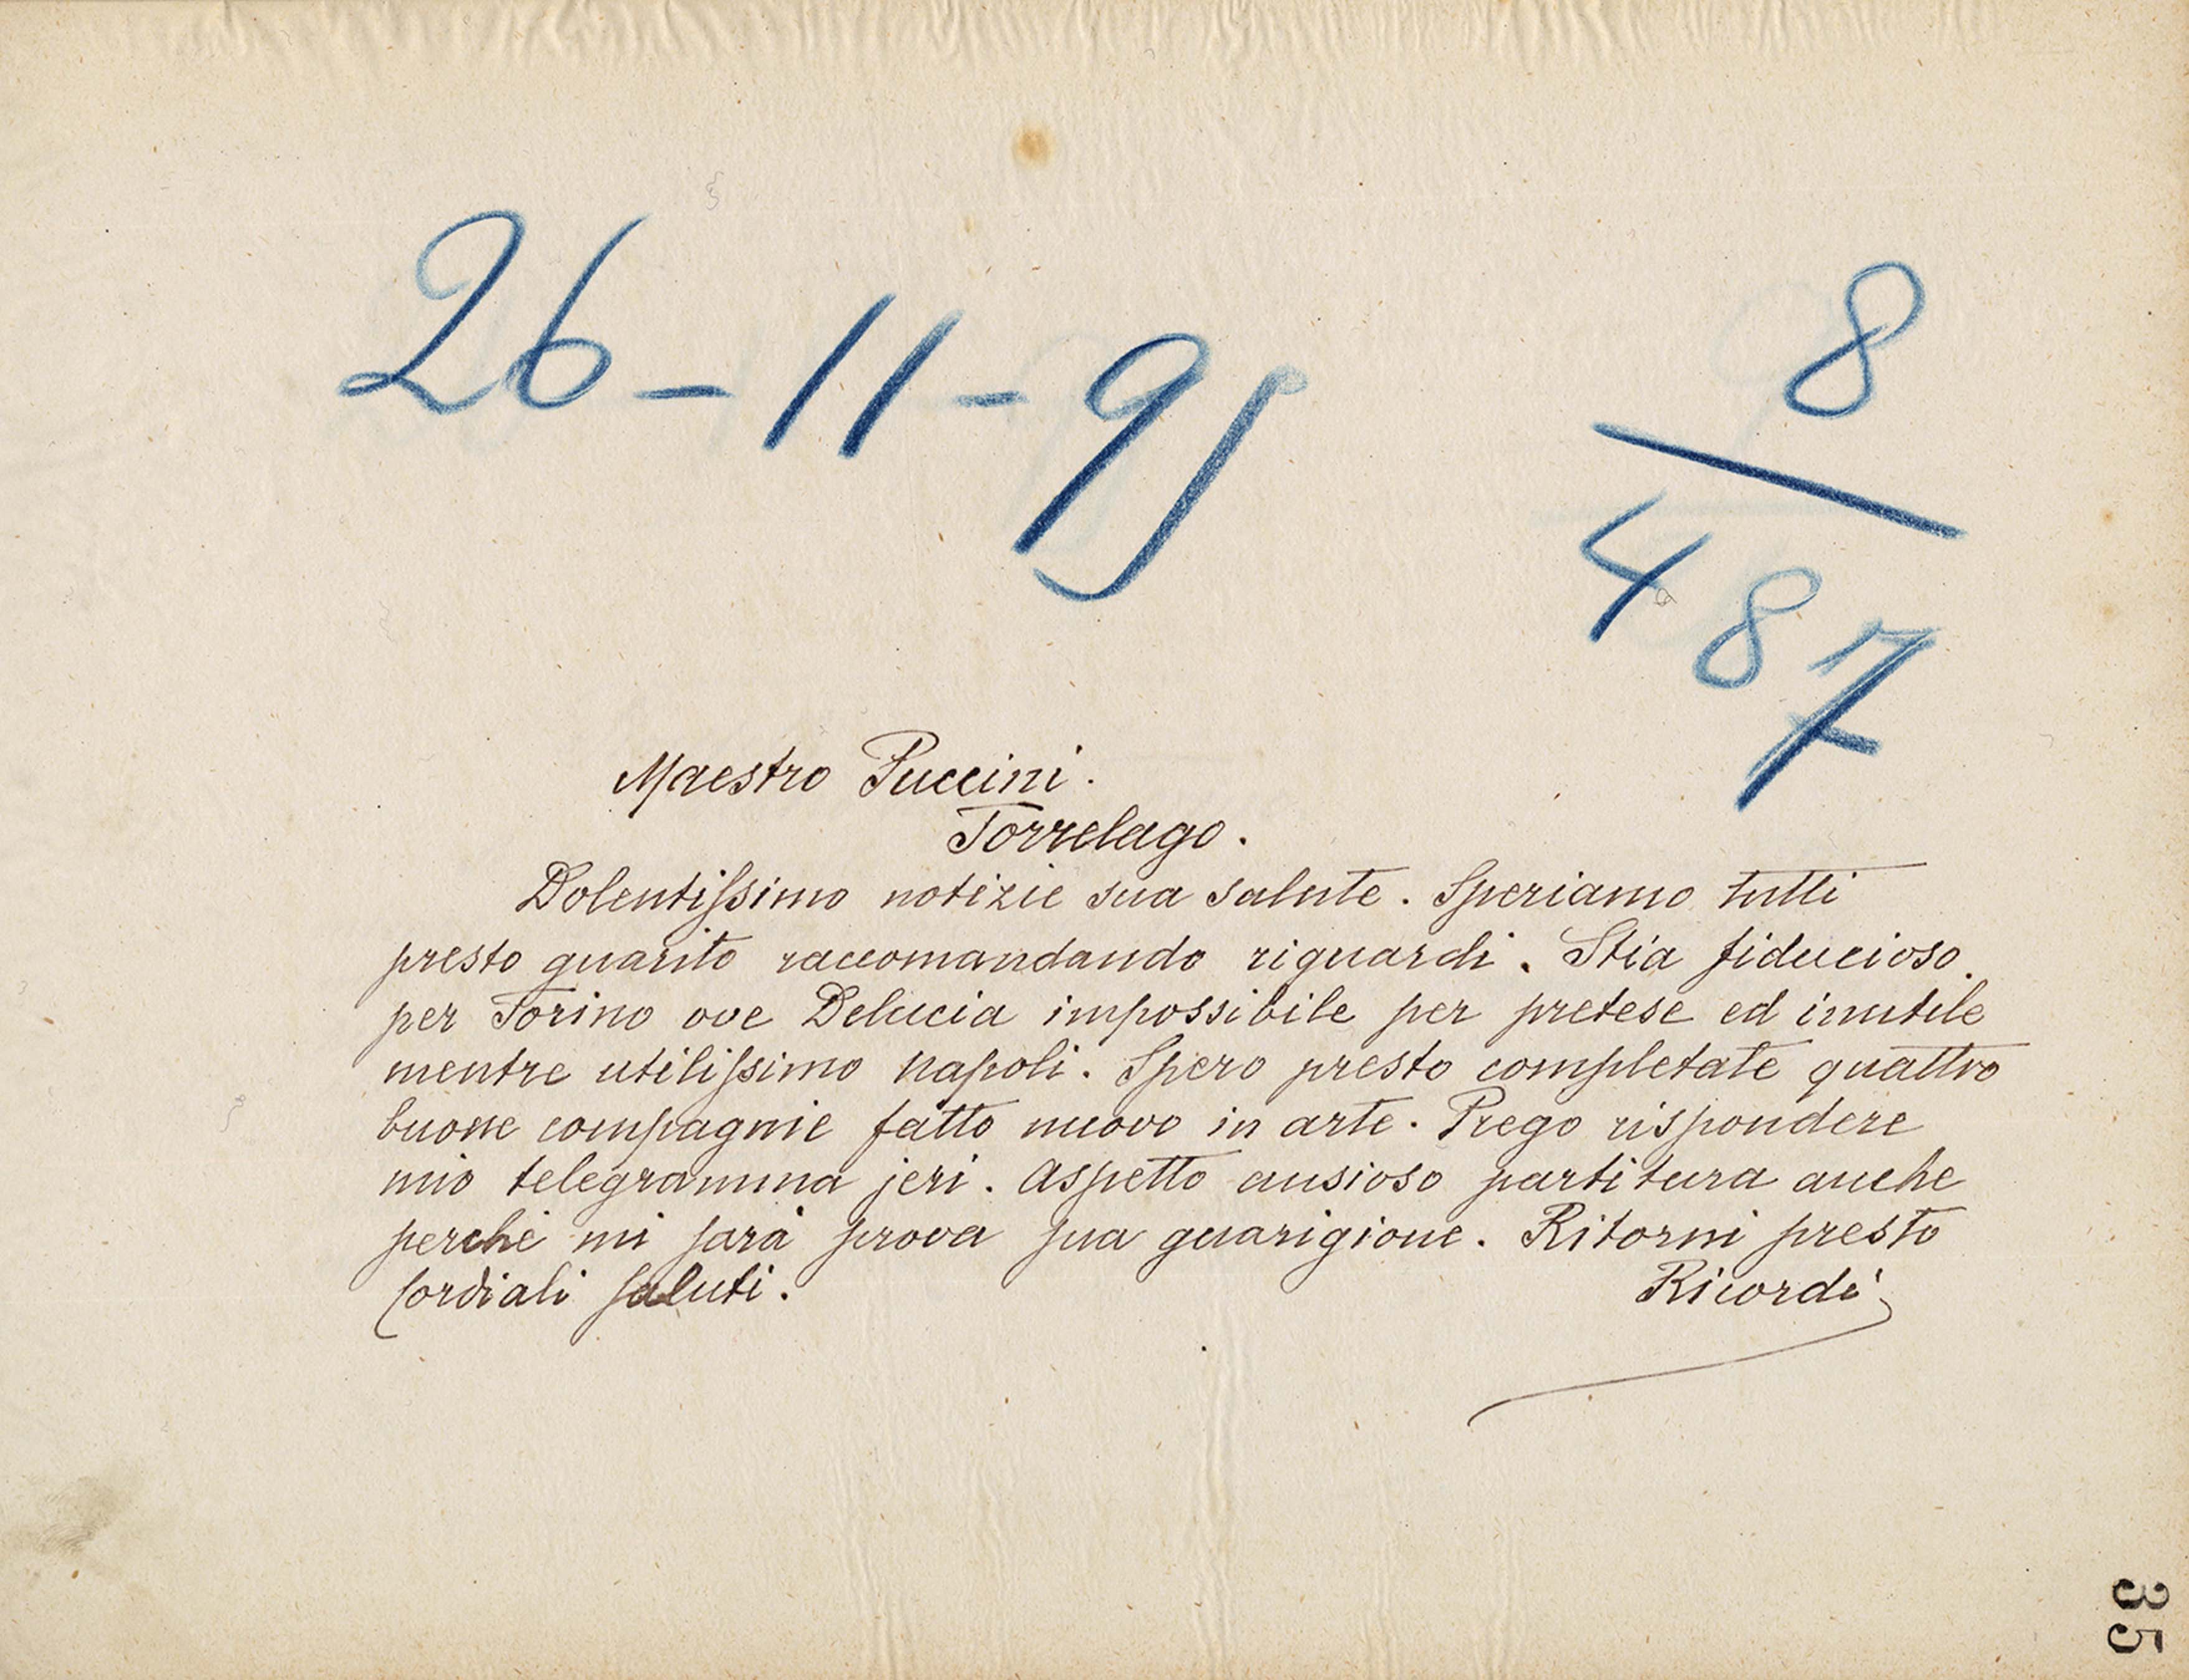 26-11-95
8
487
Maestro Puccini.
Torrelago.
Dolentissimo notizie sua salute. Speriamo tutti
presto guarito raccomandando riguardi. Stia fiducioso.
per Torino ove Delucia impossibile per pretese ed inutile
mentre utilissimo Napoli. Spero presto completate quattro
buone compagnie fatto nuovo in arte. Prego rispondere
mio telegramma jeri. Aspetto ansioso partitura anche
perchè mi sarà prova sua guarigione. Ritorni presto
Cordiali saluti. Ricordi
35